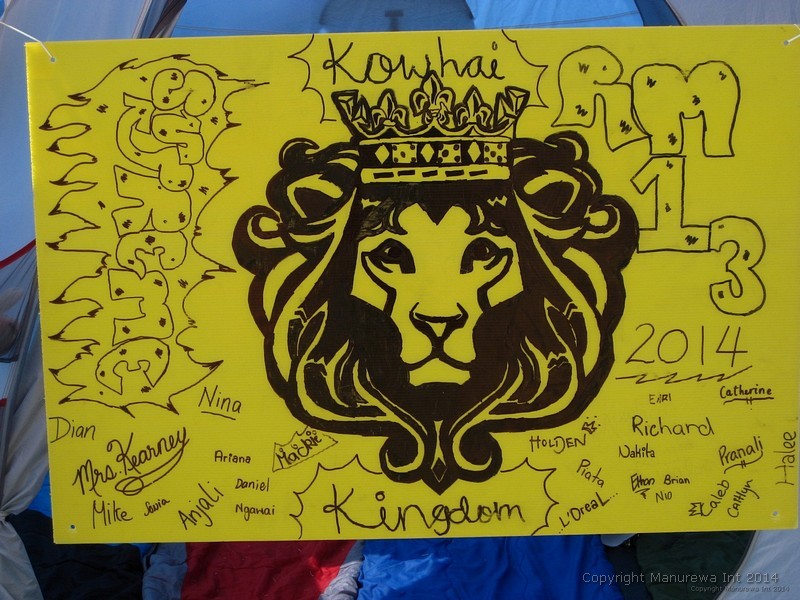 Kowhai
RM
13
2014
Nina
Dian
Mrs. Kearney
Ariana
Mike
Anjali
Daniel
Ngawai
Kingdom
HOLDEN
Piata
L'Oreal...
Catherine
Richard
Nakita
Pranali
Halee
Ethan
Brian
Nio
Caleb
Caitlyn
Copyright Manurewa Int 2014
Copyright Manurewa Int 2014